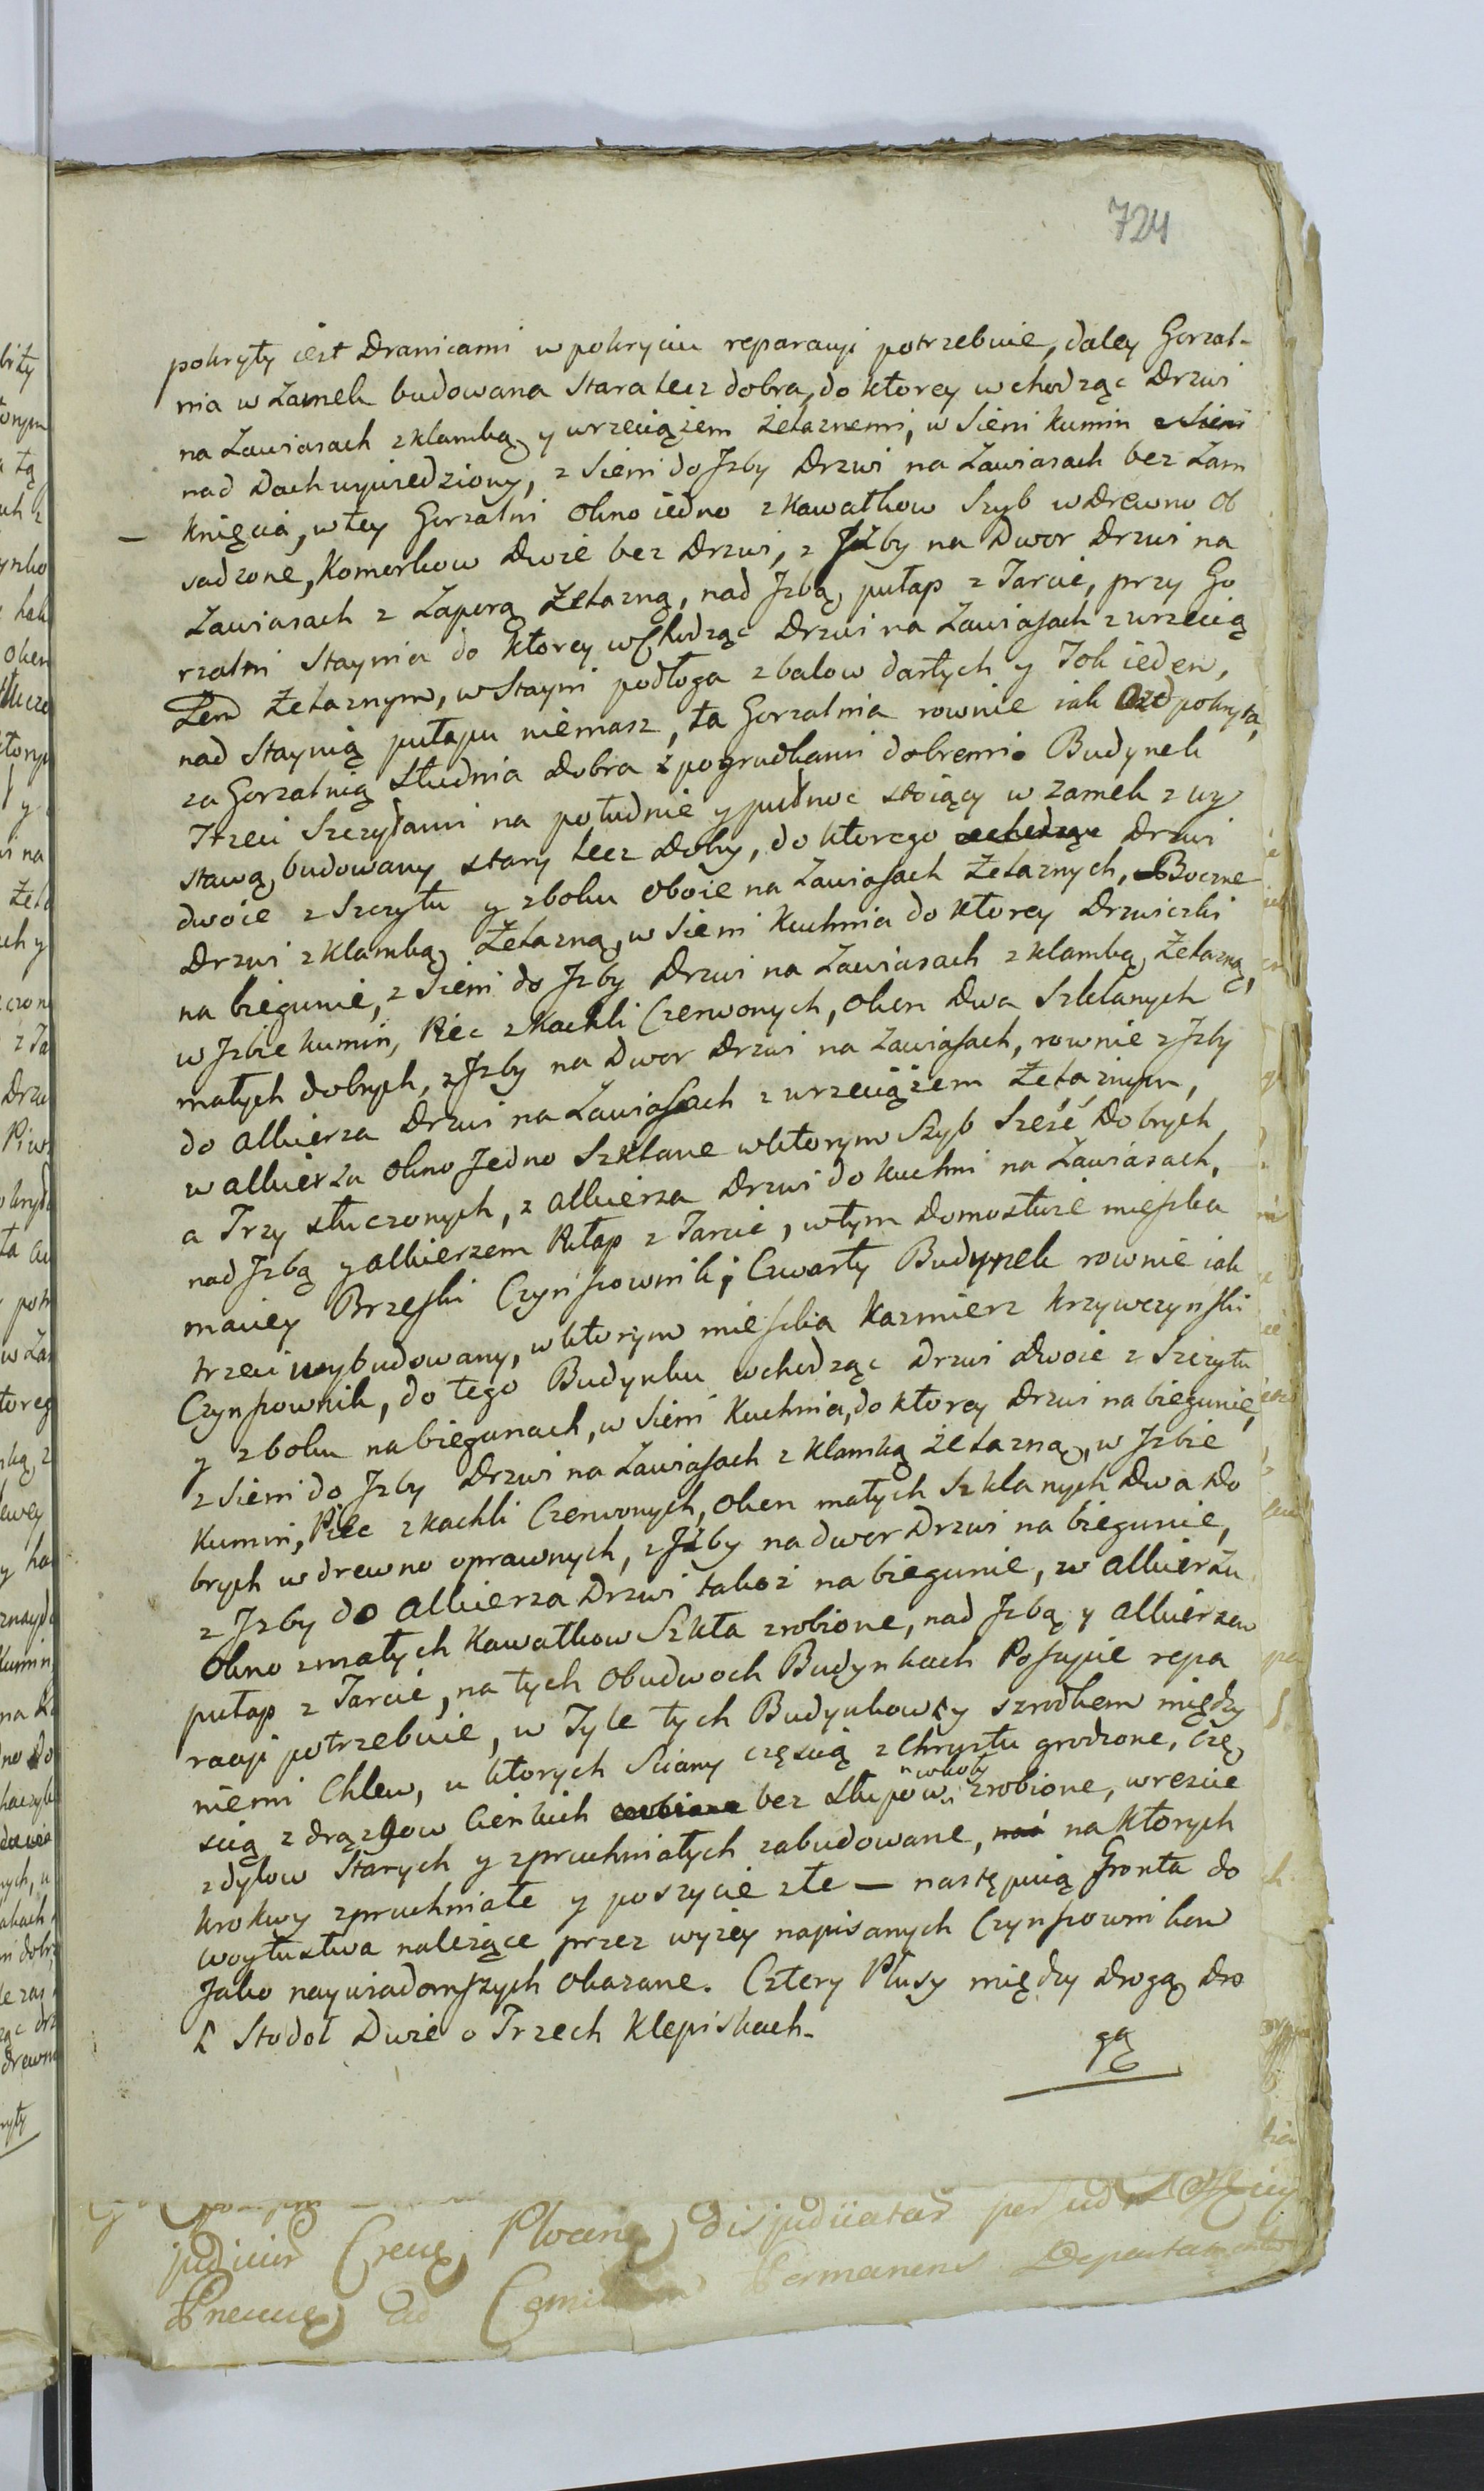 724
pokryty iest Dranicami w pokryciu reparacyi potrzebuie, daley Gorzal-
nia w Zamek budowana Stara lecz dobra, do ktorey wchodząc Drzwi
na Zawiasach z klamką y wrzeciążem żelaznemi, w Sieni kumin z Sieni
nad Dach wywiedziony, z Sieni do Izby Drzwi na Zawiasach bez Zam
knięcia, w tey Gorzalni okno iedno z kawałkow Szyb w Drewno ob
sadzone, Komorkow Dwie bez Drzwi, z Izby na Dwor Drzwi na
Zawiasach z Zaporą Żelazną, nad Izbą pułap z Tarcic, przy Go
rzalni Staynia do ktorey wchodząc Drzwi na Zawiasach z wrzecią
żem Żelaznym, w Stayni podłoga z balow dartych y Żłob ieden,
nad Staynią pułapu niemasz, ta Gorzalnia rownie iak Ozd pokryta,
za Gorzalnią Studnia Dobra z pogrudkami dobremi. Budynek
Trzeci Szczytami na południe y pułnoc stoiący w zamek z wy
stawą budowany stary lecz Dobry, do ktorego wchodząc Drzwi
dwoie z Szczytu y z boku oboie na Zawiasach Żelaznych, Boczne
Drzwi z klamką Żelazną, w Sieni Kuchnia do ktorey Drzwiczki
na biegunie, z Sieni do Izby Drzwi na Zawiasach z klamką Żelazną,
w Izbie kumin, Piec z kachli Czerwonych, okien Dwa Szklanych
małych dobrych, z Izby na Dwor Drzwi na Zawiasach, rownie z Izby
do alkierza Drzwi na Zawiasach z wrzeciążem Żelaznym,
w alkierzu okno Jedno Szklane w ktorym Szyb Sześć Dobrych
a Trzy stłuczonych, z alkierza Drzwi do kuchni na Zawiasach,
nad Izbą y alkierzem Pułap z Tarcic, w tym Domostwie mieszka
maciey Brzeski Czynszownik; Czwarty Budynek rownie iak
trzeci wybudowany, w ktorym mieszka Kazmierz Krzywczynski
Czynszownik, do tego Budynku wchodząc Drzwi dwoie z Szczytu
y z boku na biegunach, w Sieni Kuchnia, do ktorey Drzwi na biegunie,
z Sieni do Izby Drzwi na Zawiasach z klamką żelazną, w Izbie
kumin, Piec z kachli Czerwonych, okien małych Szklanych Dwa Do
brych w drewno oprawnych, z Izby na dwor Drzwi na biegunie,
z Izby do alkierza Drzwi takoż na biegunie, w alkierzu
okno z małych kawałkow Szkła zrobione, nad Izbą y alkierzem
pułap z Tarcic, na tych obudwoch Budynkach Poszycie repa
racyi potrzebuie, w Tyle tych Budynkow y szrodkem między
niemi Chlew, u ktorych Sciany częscią z Chrustu grodzone, czę
scią z drązgow cienkich zrobione bez słupow w koły zrobione, wreszcie
z dylow Starych y zpruchniałych zabudowane, nad na ktorych
krokwy zpruchniałe y poszycie złe — następuią Gronta do
woytustwa należące przez wyżey napisanych Czynszownikow
Jako naywiadomszych okazane. Cztery Plusy między drogą Dro
Stodoł Dwie o Trzech klepiskach.
gą
judiciis disjudicatas per
Permanens